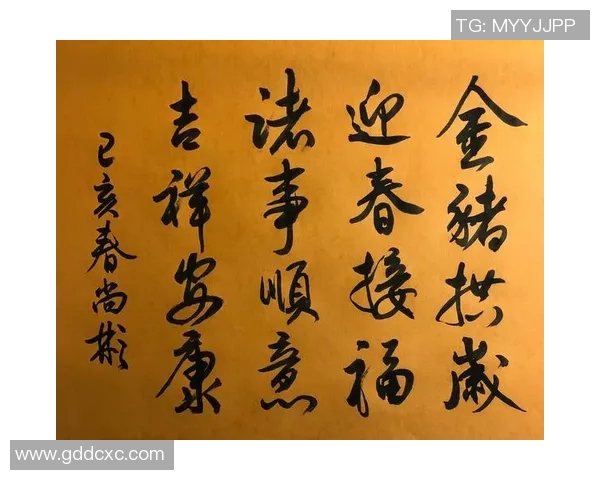 TG: MYYJJPP
金豬拱歲
迎春接福
諸事順意
吉祥安康
己亥春尚彬
www.gddcxc.com